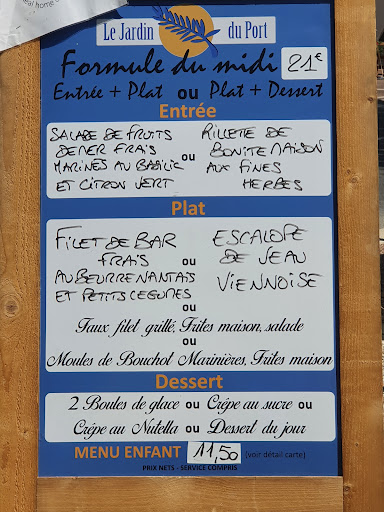 Le Jardin du Port
Formule du midi 21€
Entrée + Plat ou Plat + Dessert
Entrée
SALADE DE FRUITS
DE MER FRAIS
MARINES AU BASILIC
ET CITRON VERT
ou
RILLETE DE
BONITE MAISON
AUX FINES
HERBES
Plat
FILET DE BAR
FRAIS
AU BEURRE NANTAIS
ET PETITS LEGUMES
ou
ESCALOPE
DE VEAU
VIENNOISE
ou
Faux filet grillé, Frites maison, salade
ou
Moules de Bouchot Marinières, Frites maison
Dessert
2 Boules de glace ou Crêpe au sucre ou
Crêpe au Nutella ou Dessert du jour
MENU ENFANT 11,50 (voir détail carte)
PRIX NETS - SERVICE COMPRIS